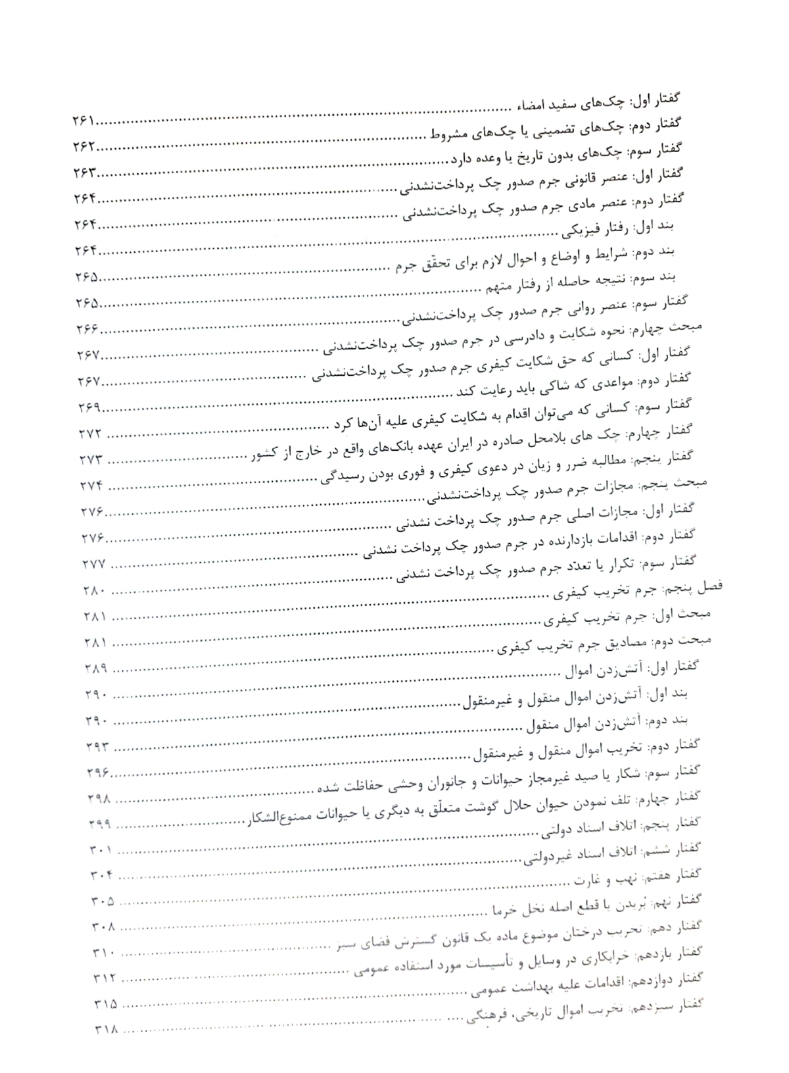 گفتار اول: چک‌های سفید امضاء ........ ۲۶۱
گفتار دوم: چک‌های تضمینی یا چک‌های مشروط ........ ۲۶۲
گفتار سوم: چک‌های بدون تاریخ یا وعده دارد ........ ۲۶۳
گفتار اول: عنصر قانونی جرم صدور چک پرداخت‌نشدنی ........ ۲۶۴
گفتار دوم: عنصر مادی جرم صدور چک پرداخت‌نشدنی ........ ۲۶۴
بند اول: رفتار فیزیکی ........ ۲۶۴
بند دوم: شرایط و اوضاع و احوال لازم برای تحقّق جرم ........ ۲۶۵
بند سوم: نتیجه حاصله از رفتار متهم ........ ۲۶۵
گفتار سوم: عنصر روانی جرم صدور چک پرداخت‌نشدنی ........ ۲۶۶
مبحث چهارم: نحوه شکایت و دادرسی در جرم صدور چک پرداخت‌نشدنی ........ ۲۶۷
گفتار اول: کسانی که حق شکایت کیفری جرم صدور چک پرداخت‌نشدنی ........ ۲۶۷
گفتار دوم: مواعدی که شاکی باید رعایت کند ........ ۲۶۹
گفتار سوم: کسانی که می‌توان اقدام به شکایت کیفری علیه آن‌ها کرد ........ ۲۷۲
گفتار چهارم: چک های بلامحل صادره در ایران عهده بانک‌های واقع در خارج از کشور ........ ۲۷۳
گفتار پنجم: مطالبه ضرر و زیان در دعوی کیفری و فوری بودن رسیدگی ........ ۲۷۴
مبحث پنجم: مجازات جرم صدور چک پرداخت‌نشدنی ........ ۲۷۶
گفتار اول: مجازات اصلی جرم صدور چک پرداخت نشدنی ........ ۲۷۶
گفتار دوم: اقدامات بازدارنده در جرم صدور چک پرداخت نشدنی ........ ۲۷۷
گفتار سوم: تکرار یا تعدّد جرم صدور چک پرداخت نشدنی ........ ۲۸۰
فصل پنجم: جرم تخریب کیفری ........ ۲۸۱
مبحث اول: جرم تخریب کیفری ........ ۲۸۱
مبحث دوم: مصادیق جرم تخریب کیفری ........ ۲۸۹
گفتار اول: آتش‌زدن اموال ........ ۲۹۰
بند اول: آتش‌زدن اموال منقول و غیرمنقول ........ ۲۹۰
بند دوم: آتش‌زدن اموال منقول ........ ۲۹۳
گفتار دوم: تخریب اموال منقول و غیرمنقول ........ ۲۹۶
گفتار سوم: شکار یا صید غیرمجاز حیوانات و جانوران وحشی حفاظت شده ........ ۲۹۸
گفتار چهارم: تلف نمودن حیوان حلال گوشت متعلّق به دیگری یا حیوانات ممنوع‌الشکار ........ ۲۹۹
گفتار پنجم: اتلاف اسناد دولتی ........ ۳۰۱
گفتار ششم: اتلاف اسناد غیردولتی ........ ۳۰۴
گفتار هفتم: نهب و غارت ........ ۳۰۵
گفتار نهم: بُریدن یا قطع اصله نخل خرما ........ ۳۰۸
گفتار دهم: تخریب درختان موضوع ماده یک قانون گسترش فضای سبز ........ ۳۱۰
گفتار یازدهم: خرابکاری در وسایل و تأسیسات مورد استفاده عمومی ........ ۳۱۲
گفتار دوازدهم: اقدامات علیه بهداشت عمومی ........ ۳۱۵
گفتار سیزدهم: تخریب اموال تاریخی، فرهنگی ........ ۳۱۸